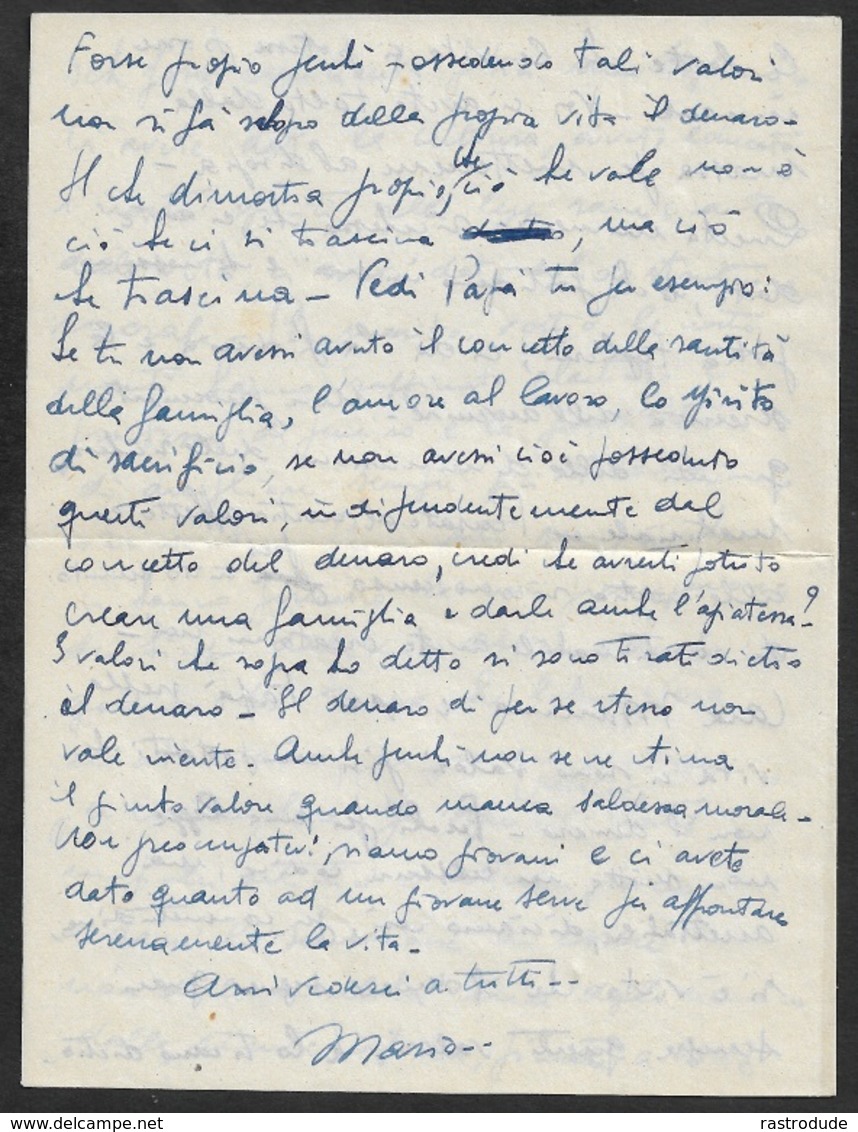 Forse propio perchè possedendo tali valori
non si fà scopo della propria vita il denaro -
Il che dimostra propio, che ciò che vale non è
ciò che ci si trascina, ma ciò
che trascina - Vedi Papà tu per esempio:
Se tu non avessi avuto il concetto della santità
della famiglia, l'amore al lavoro, lo spirito
di sacrificio, se non avessi cioè posseduto
questi valori, indipendentemente dal
concetto del denaro, credi che avresti potuto
creare una famiglia e darle anche l'agiatessa?
I valori che sopra ho detto si sono tirati dietro
il denaro - Il denaro di per se stesso non
vale niente. Anche perchè non se ne stima
il giusto valore quando manca saldessa morale -
Non preocupatevi, siamo giovani e ci avete
dato quanto ad un giovane serve per affrontare
serenamente la vita -
Arrivederci a tutti --
Mario --
rastrodude